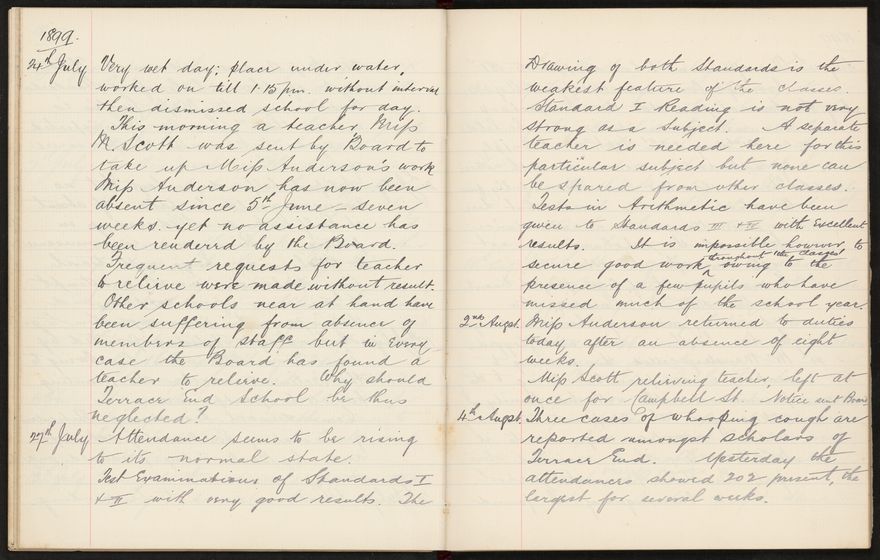 1899.
24th July Very wet day; place under water,
worked on till 1.15 p.m. without interval
then dismissed school for day.
This morning a teacher Miss
M. Scott was sent by Board to
take up Miss Anderson's work
Miss Anderson has now been
absent since 5th June – seven
weeks – yet no assistance has
been renderrd by the Board.
Frequent requests for teacher
to relieve were made without result.
Other schools near at hand have
been suffering from absence of
members of staff but in every
case the Board has found a
teacher to relieve. Why should
Terrace End School be thus
neglected?
27th July Attendance seems to be rising
to its normal state.
Test Examinations of Standards I
& II with very good results. The
Drawing of both Standards is the
weakest feature of the classes.
Standard I Reading is not very
strong as a Subject. A separate
teacher is needed here for this
particular subject but none can
be spared from other classes.
Tests in Arithmetic have been
given to Standards III & IV with Excellent
results. It is impossible however, to
secure good work throughout the classes owing to the
presence of a few pupils who have
missed much of the school year.
2nd Augst. Miss Anderson returned to duties
today after an absence of eight
weeks.
Miss Scott relieving teacher, left at
once for Campbell St. Notice sent Board
4th Augst. Three cases of whooping cough are
reported amongst scholars of
Terrace End. Yesterday the
attendances showed 202 present, the
largest for several weeks.